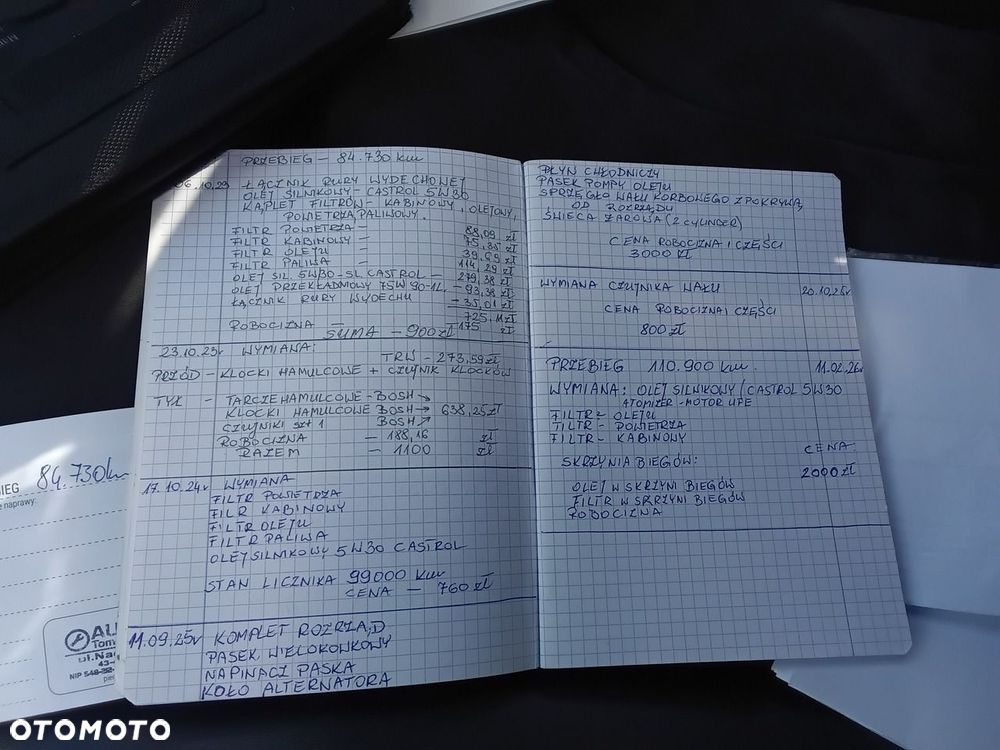 PRZEBIEG - 84.730 km
06.10.23 ŁĄCZNIK RURY WYDECHOWEJ
OLEJ SILNIKOWY - CASTROL 5W30
KĄPLET FILTRÓW - KABINOWY, OLEJOWY,
POWIETRZA, PALIWOWY.
FILTR POWIETRZA - 88,09 zł
FILTR KABINOWY - 75,35 zł
FILTR OLEJU - 39,69 zł
FILTR PALIWA - 114,29 zł
OLEJ SIL. 5W30-5L CASTROL - 279,38 zł
OLEJ PRZEKŁADNIOWY 75W90-1L - 93,38 zł
ŁĄCZNIK RURY WYDECHU - 35,01 zł
725,11 zł
ROBOCIZNA - 175 zł
SUMA - 900 zł
23.10.23r WYMIANA:
TRW - 273,59 zł
PRZÓD - KLOCKI HAMULCOWE + CZUJNIK KLOCKÓW
TYŁ - TARCZE HAMULCOWE - BOSH →
KLOCKI HAMULCOWE BOSH → 638,25 zł
CZUJNIKI szt 1 BOSH ↗
ROBOCIZNA - 188,16 zł
RAZEM - 1100 zł
17.10.24r WYMIANA
FILTR POWIETRZA
FILR KABINOWY
FILTR OLEJU
FILTR PALIWA
OLEJ SILNIKOWY 5W30 CASTROL
STAN LICZNIKA 99000 km
CENA - 760 zł
11.09.25r KOMPLET ROZRZĄD
PASEK WIELOROWKOWY
NAPINACZ PASKA
KOŁO ALTERNATORA
PŁYN CHŁODNICZY
PASEK POMPY OLEJU
SPRZĘGŁO WAŁU KORBOWEGO Z POKRYWĄ
OD ROZRZĄDU
ŚWIECA ŻAROWA (2 CYLINDER)
CENA ROBOCIZNA I CZĘŚCI
3000 zł
WYMIANA CZUJNIKA WAŁU 20.10.25r
CENA ROBOCIZNA I CZĘŚCI
800 zł
PRZEBIEG 110.900 km. 11.02.26r
WYMIANA: OLEJ SILNIKOWY/CASTROL 5W30
ATOMIZER - MOTOR LIFE
FILTR - OLEJU
FILTR - POWIETRZA
FILTR - KABINOWY
CENA:
SKRZYNIA BIEGÓW: 2000 zł
OLEJ W SKRZYNI BIEGÓW
FILTR W SKRZYNI BIEGÓW
ROBOCIZNA
IEG 84.730 km
e naprawy:
ul.Na
NIP 548-32-
OTOMOTO